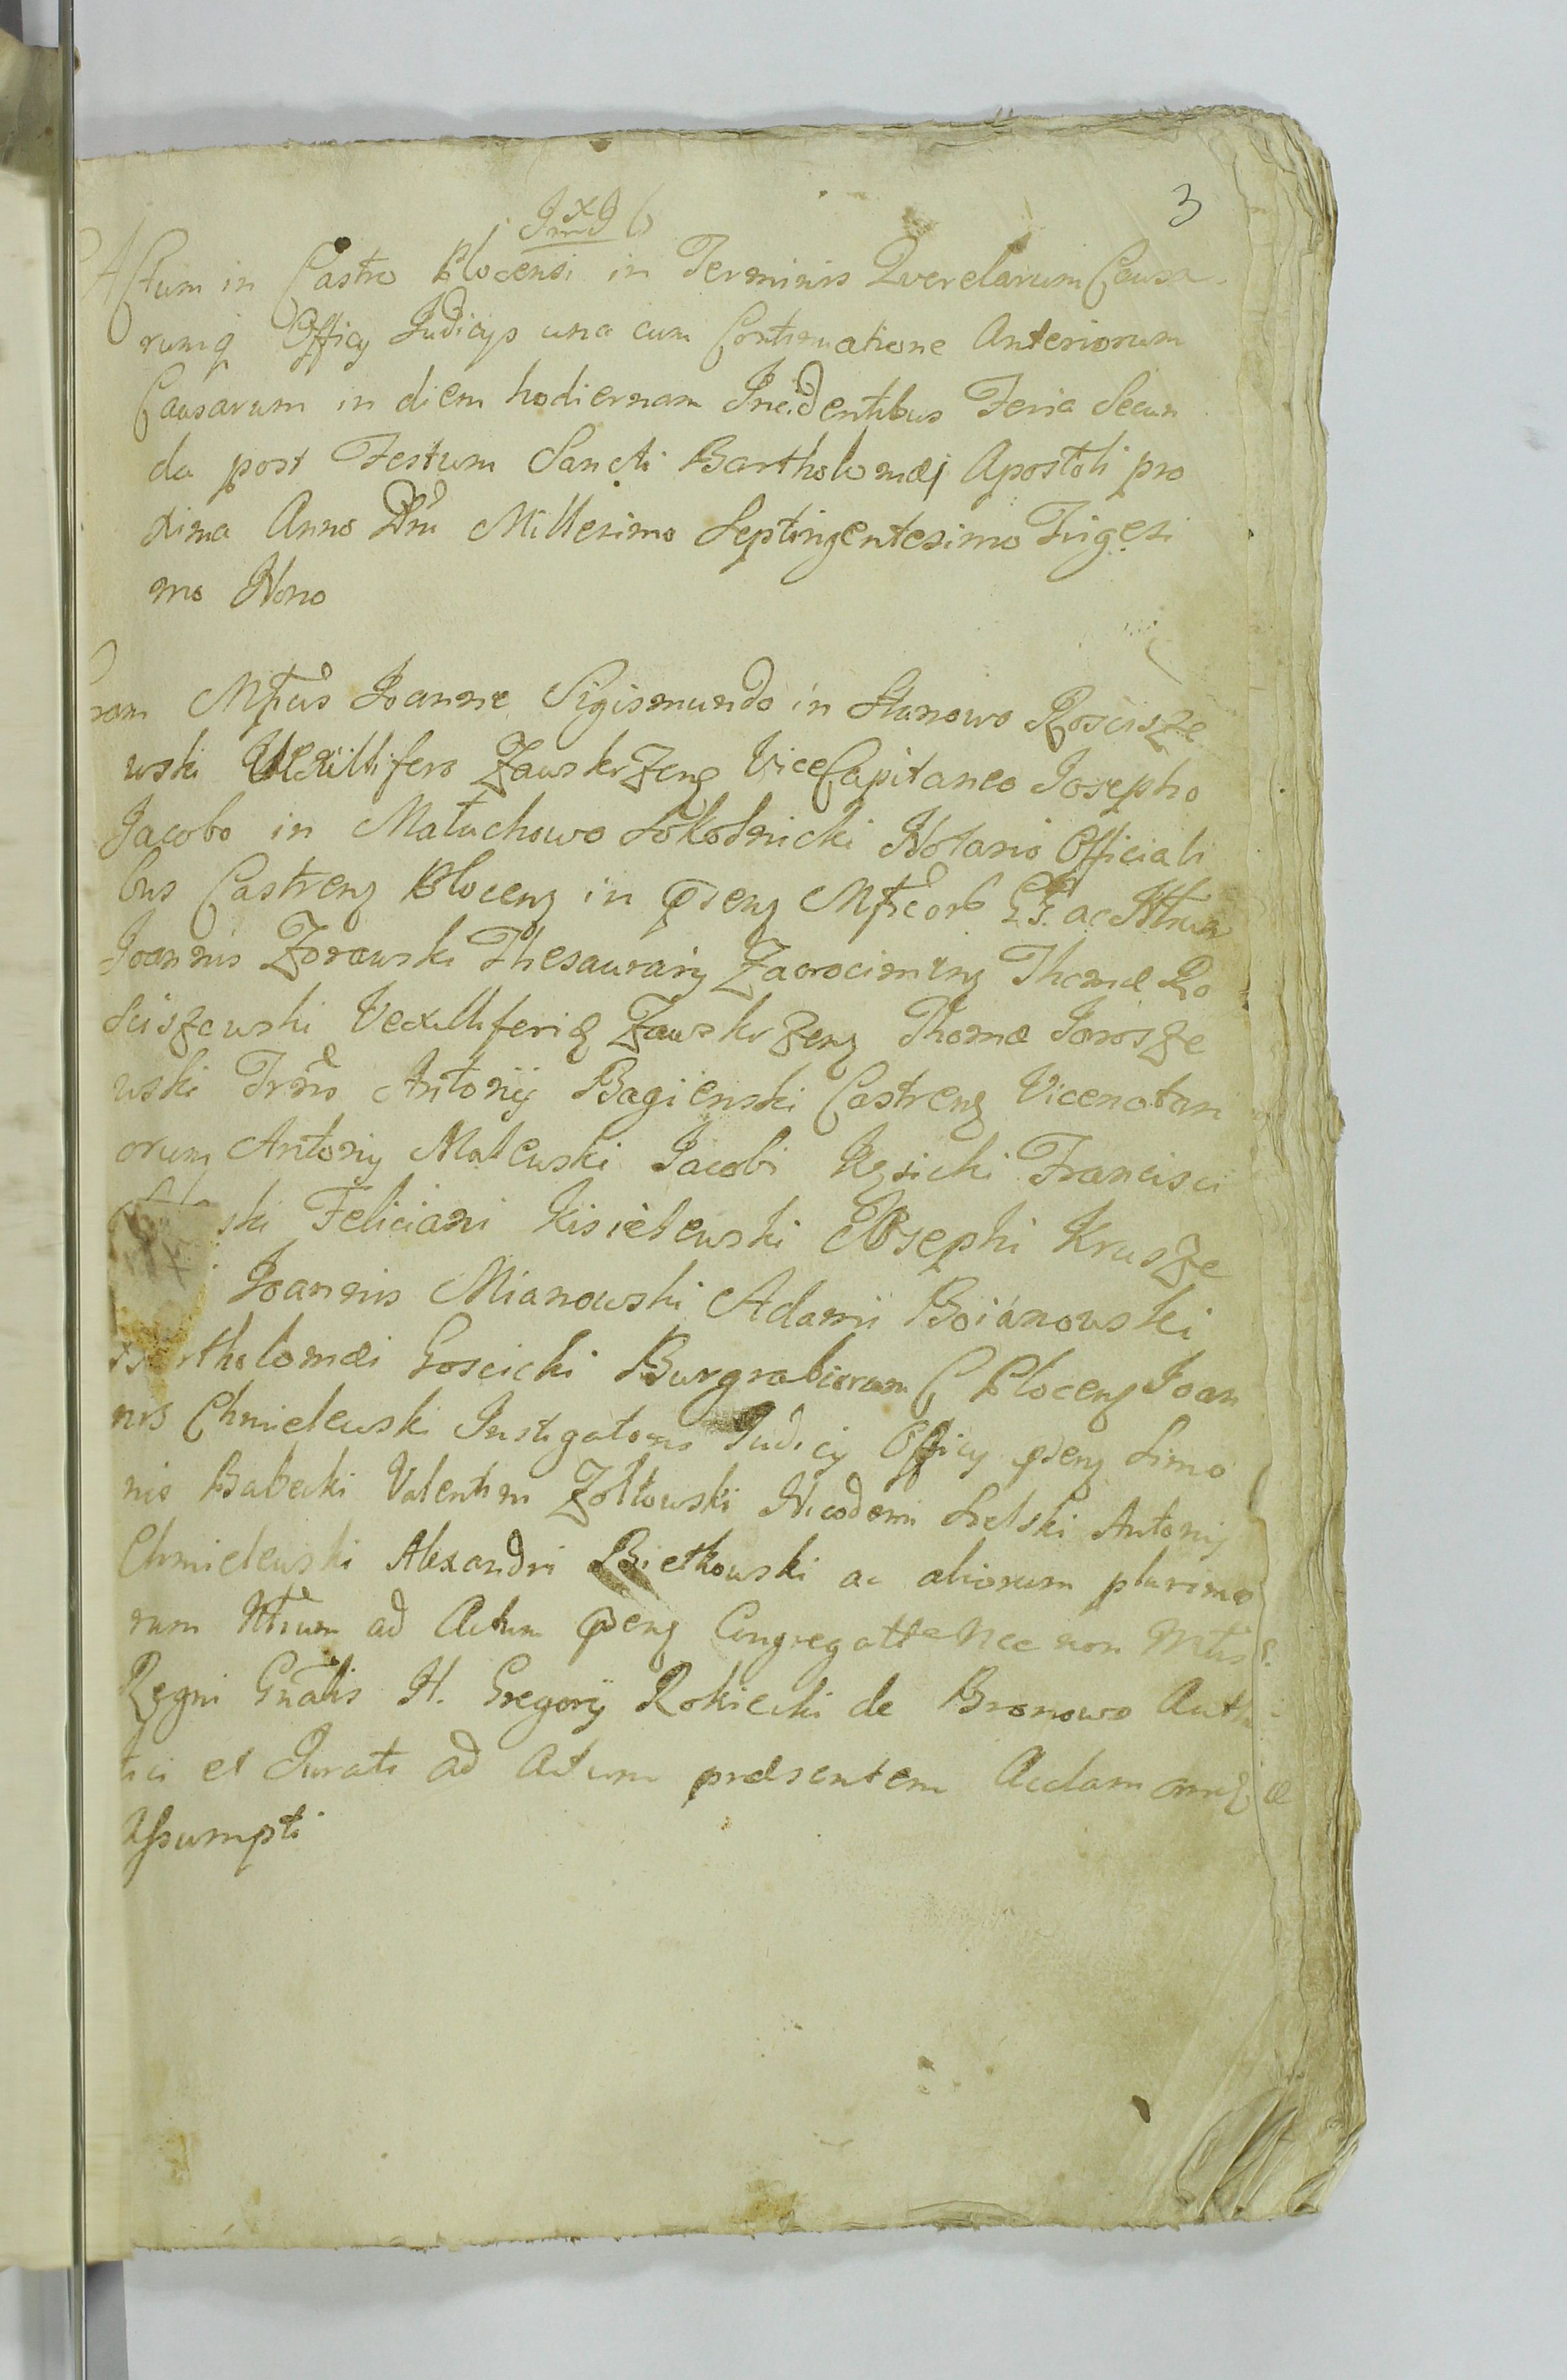 3
Actum in Castro Plocensi in Terminis Querelarum Causa
rumq Officy Judicys una cum Continuatione Anteriorum
Causarum in diem hodiernam Incidentibus Feria Secun
da post Festum Sancti Bartholomæj Apostoli pro
xima Anno Dni Millesimo Septingentesimo Trigesi
mo Nono
ram Mfcis Joanne Sigismundo in Stanowo Rościsze
wski Vexillifero Zawskrzeng ViceCapitaneo Josepho
Jacobo in Małuchowo Sokolnicki Notario Officiali
bus Castreng Ploceng in pseng Mfcorb GG. ac Nrum
Joannis Zorawski Thesaurarij Zacrocimeng Thomæ Ro
sciszewski Vexilliferig Zawskrzeng Thomæ Jarosze
wski Trnis Antonij Bagienski Castreng Vicenotari
orum Antonij Malewski Jacobi Kęsicki Francisci
ski Feliciani Kisielewski Josephi Krusze
Joannis Mianowski Adami Boianowski
Bartholomæi Goscicki Burgrabiorum C Ploceng Joan
nis Chmielewski Instigatoris Judicy Officy pseng Simo
nis Babecki Valentini Zołtowski Nicodemi Sielski Antonij
Chmielewski Alexandri Bietkowski ac aliorum plurimo
rum Ntium ad Actum pseng Congregatt Nec non Mtis
Regni Gnalis H. Gregorij Rokiecki de Bronowo Auth
tici et Jurati ad Actum præsentem
Assumpti